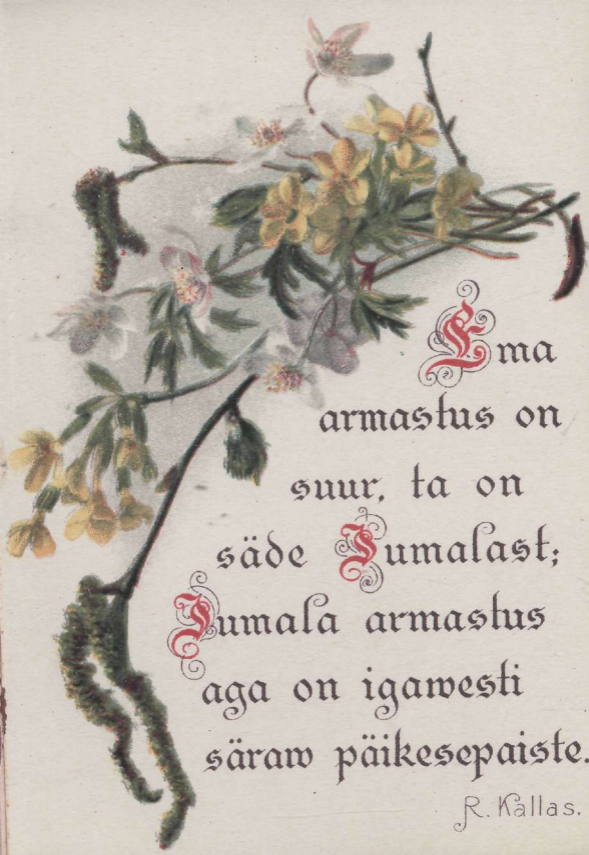 Ema
armastus on
suur, ta on
säde Jumalast;
Jumala armastus
aga on igawesti
säraw päikesepaiste.
R. Kallas.